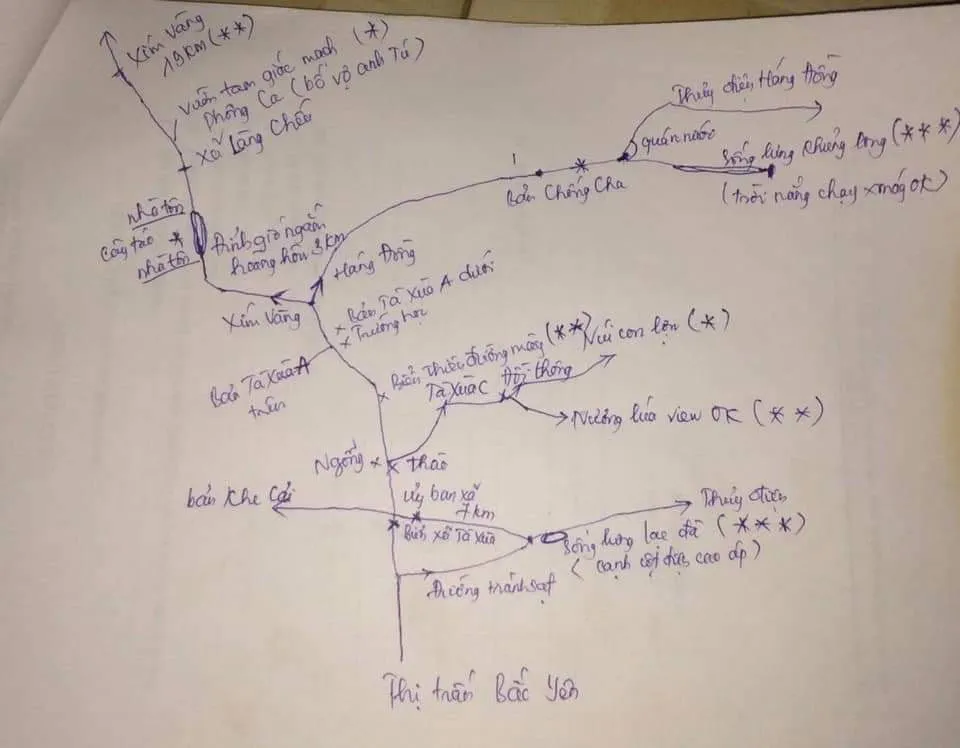 Xím Vàng
19km (**)
Vườn tam giác mạch (*)
Phông Ca (bố vợ anh Tú)
Xã Làng Chếu
Thủy điện Háng Đồng
quán nước
Sống lưng khủng long (***)
(trời nắng chạy xmáy OK)
Bản Chống Cha
nhà tôn
cây táo *
nhà tôn
Đỉnh gió ngắm
hoàng hôn 3km
Háng Đồng
Xím Vàng
Bản Tà Xùa A dưới
Trường học
Bản Tà Xùa A
trên
Biển thiên đường mây (**)
Núi con lợn (*)
Tà Xùa C
Đồi thông
Nương lúa view OK (**)
Ngống
thào
bản Khe Cải
Uỷ ban xã
7km
Biển xã Tà Xùa
Thủy điện
Sống lưng lạc đà (***)
(cạnh cột điện cao áp)
đường tránh sạt
Thị trấn Bắc Yên